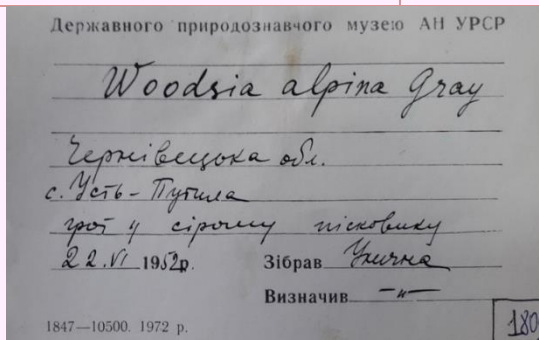 Державного природознавчого музею АН УРСР
Woodsia alpina Gray
Чернівецька обл.
с. Усть-Путила
грот у сірому пісковику
22.VI 1952р. Зібрав
Визначив —"—
1847—10500. 1972 р.
180